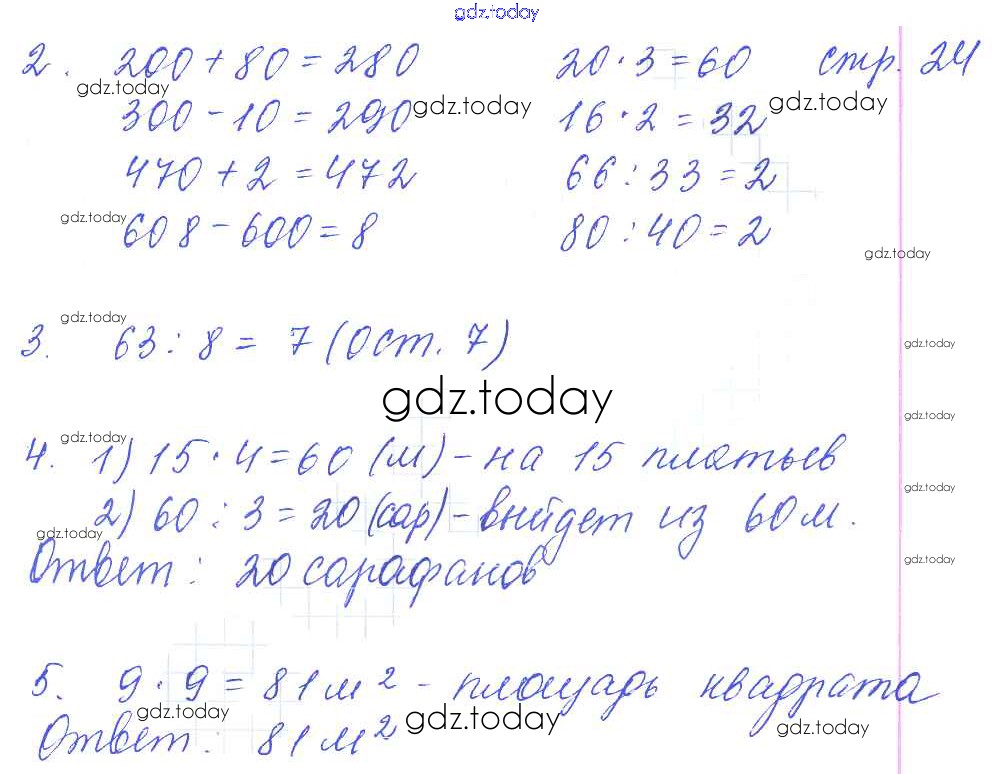 gdz.today
2. 200 + 80 = 280 20 · 3 = 60 стр. 24
gdz.today gdz.today gdz.today
300 - 10 = 290 16 · 2 = 32
470 + 2 = 472 66 : 33 = 2
gdz.today
608 - 600 = 8 80 : 40 = 2
gdz.today
gdz.today
3. 63 : 8 = 7 (Ост. 7)
gdz.today
gdz.today
gdz.today
gdz.today
4. 1) 15 · 4 = 60 (м) - на 15 платьев
gdz.today
2) 60 : 3 = 20 (сар) - выйдет из 60 м.
gdz.today
gdz.today
Ответ: 20 сарафанов
5. 9 · 9 = 81 м² - площадь квадрата
gdz.today gdz.today gdz.today
Ответ: 81 м²